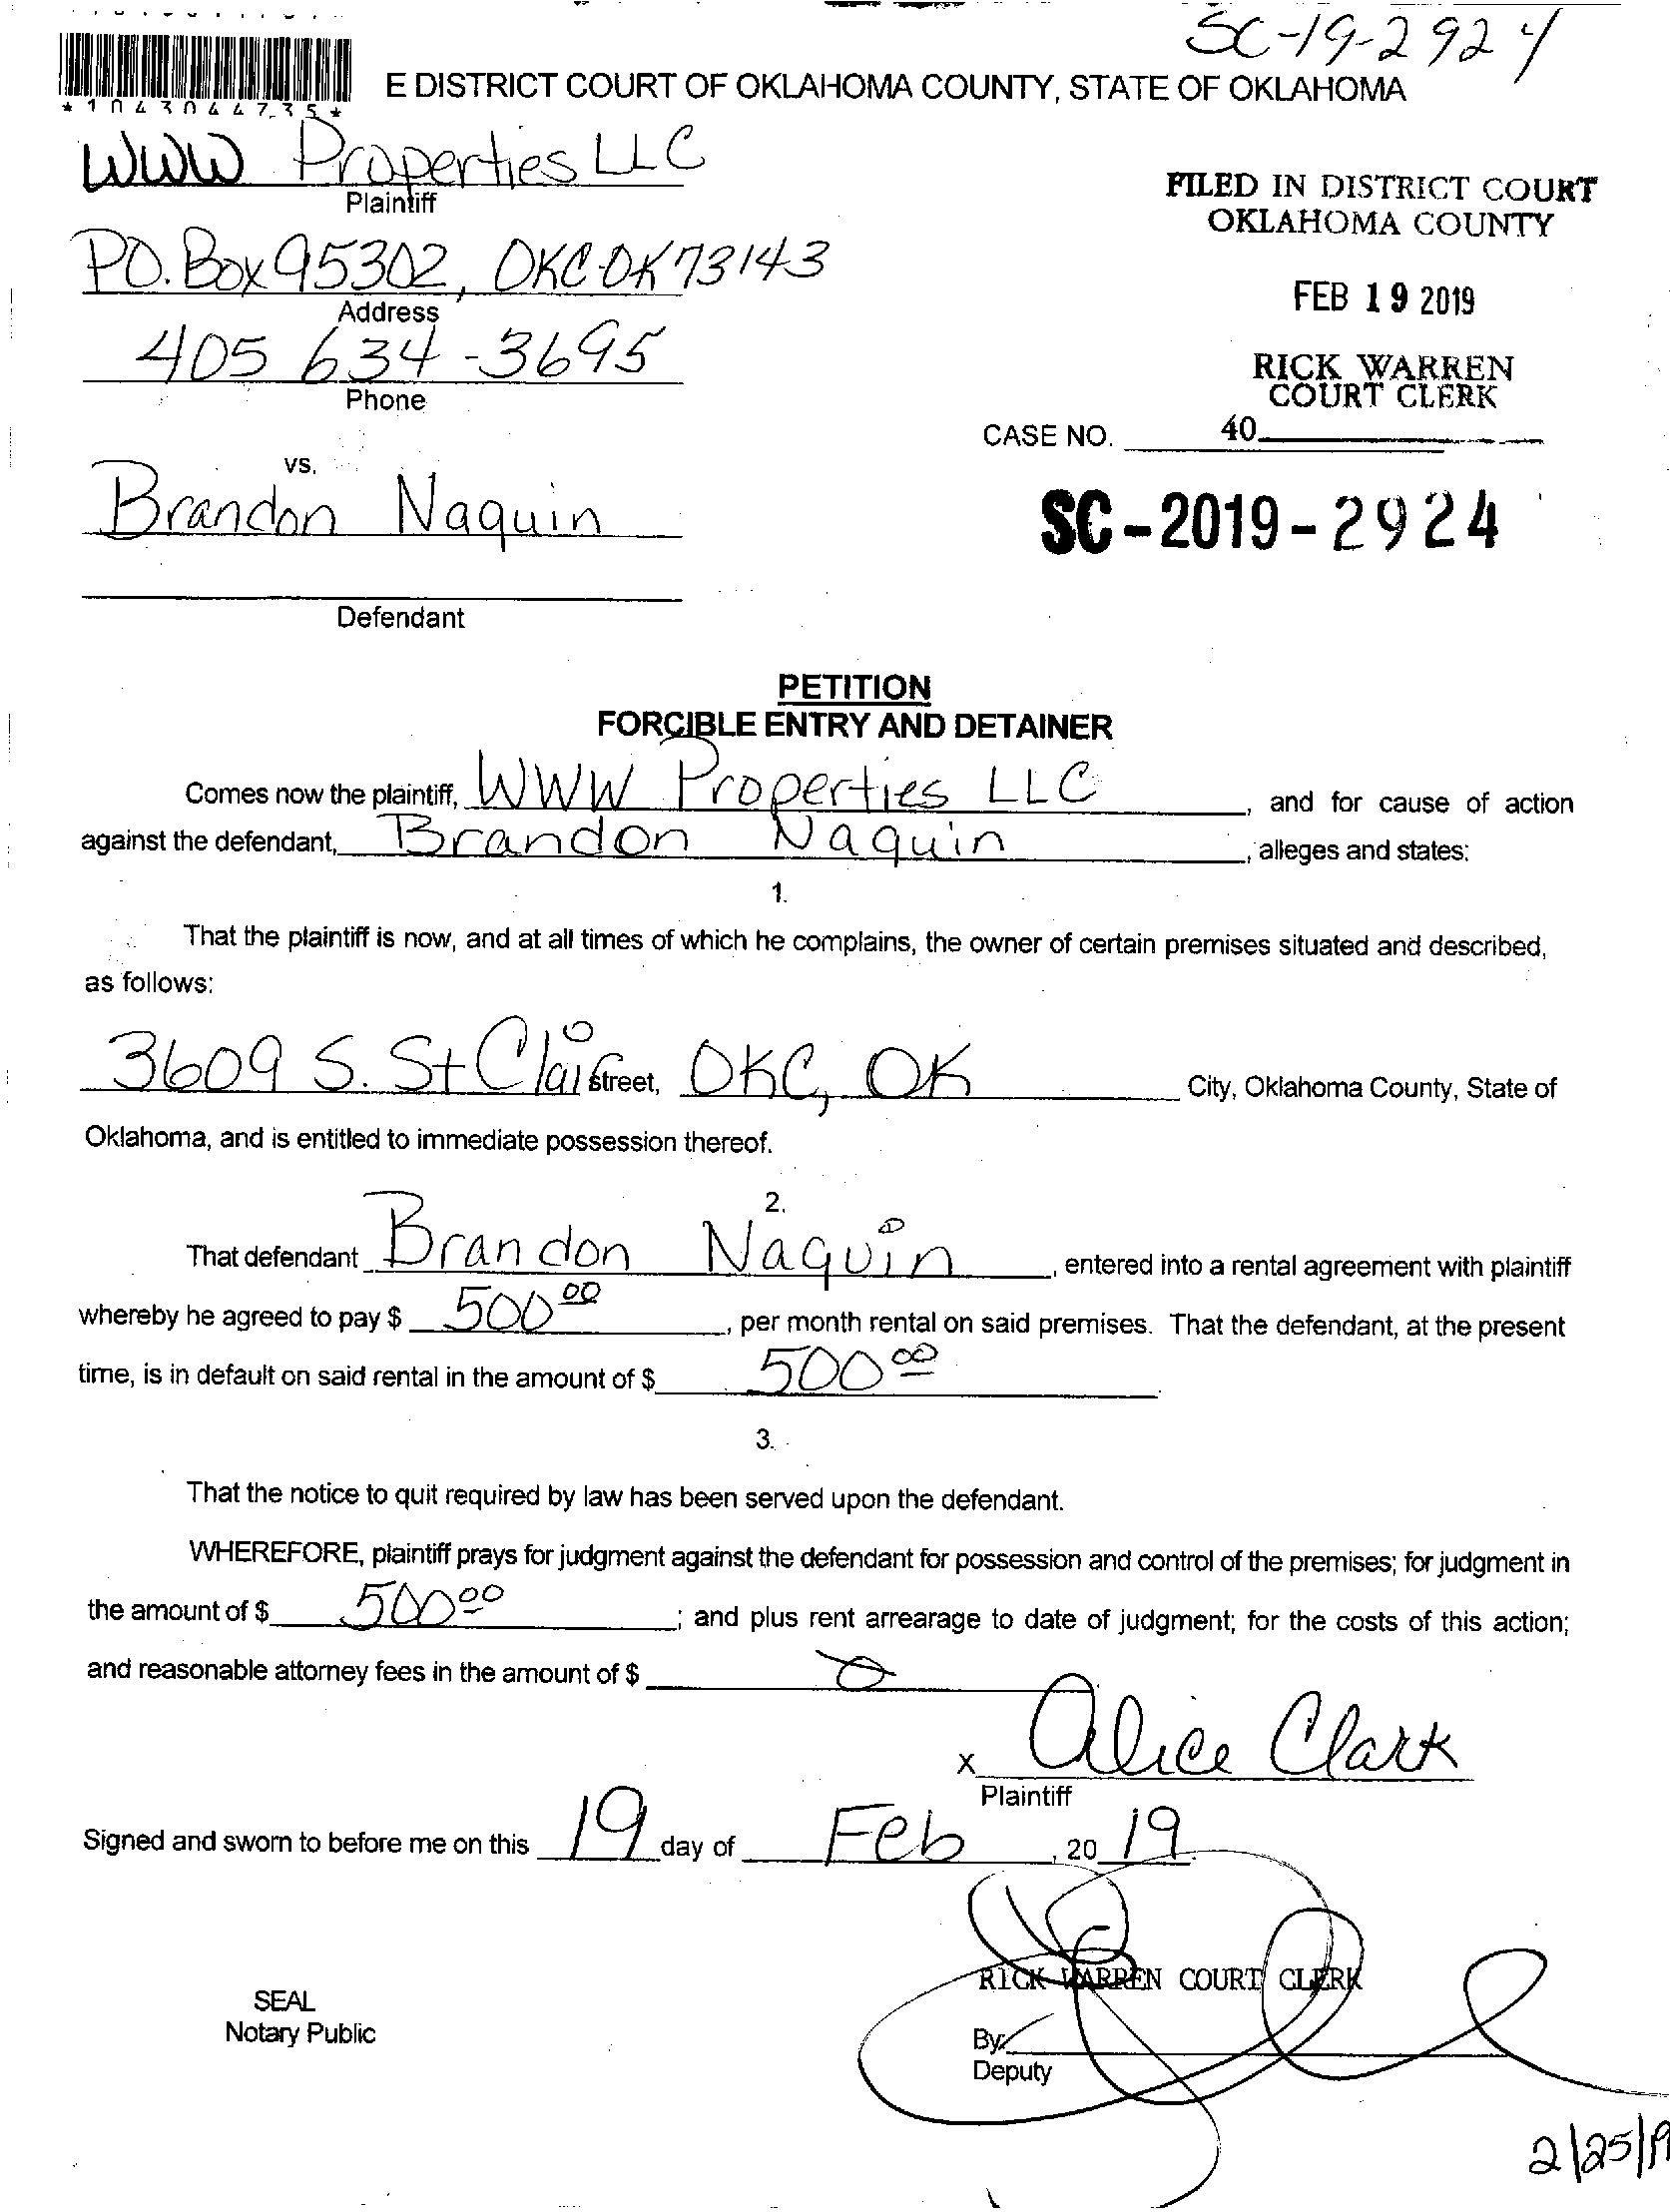 SC-19-2924
*1043044735*
E DISTRICT COURT OF OKLAHOMA COUNTY, STATE OF OKLAHOMA
WWW Properties LLC
Plaintiff
FILED IN DISTRICT COURT
OKLAHOMA COUNTY
P.O. Box 95302, OKC OK 73143
Address
FEB 19 2019
405 634-3695
Phone
RICK WARREN
COURT CLERK
CASE NO. 40
vs.
Brandon Naquin
SC-2019-2924
Defendant
PETITION
FORCIBLE ENTRY AND DETAINER
Comes now the plaintiff, WWW Properties LLC, and for cause of action
against the defendant, Brandon Naquin, alleges and states:
1.
That the plaintiff is now, and at all times of which he complains, the owner of certain premises situated and described,
as follows:
3609 S. St Clair Street, OKC, OK City, Oklahoma County, State of
Oklahoma, and is entitled to immediate possession thereof.
2.
That defendant Brandon Naquin, entered into a rental agreement with plaintiff
whereby he agreed to pay $ 500 00, per month rental on said premises. That the defendant, at the present
time, is in default on said rental in the amount of $ 500 00.
3.
That the notice to quit required by law has been served upon the defendant.
WHEREFORE, plaintiff prays for judgment against the defendant for possession and control of the premises; for judgment in
the amount of $ 500 00; and plus rent arrearage to date of judgment; for the costs of this action;
and reasonable attorney fees in the amount of $ 0
x Alice Clark
Plaintiff
Signed and sworn to before me on this 19 day of Feb, 20 19
RICK WARREN COURT CLERK
SEAL
Notary Public
By:
Deputy
2/25/19